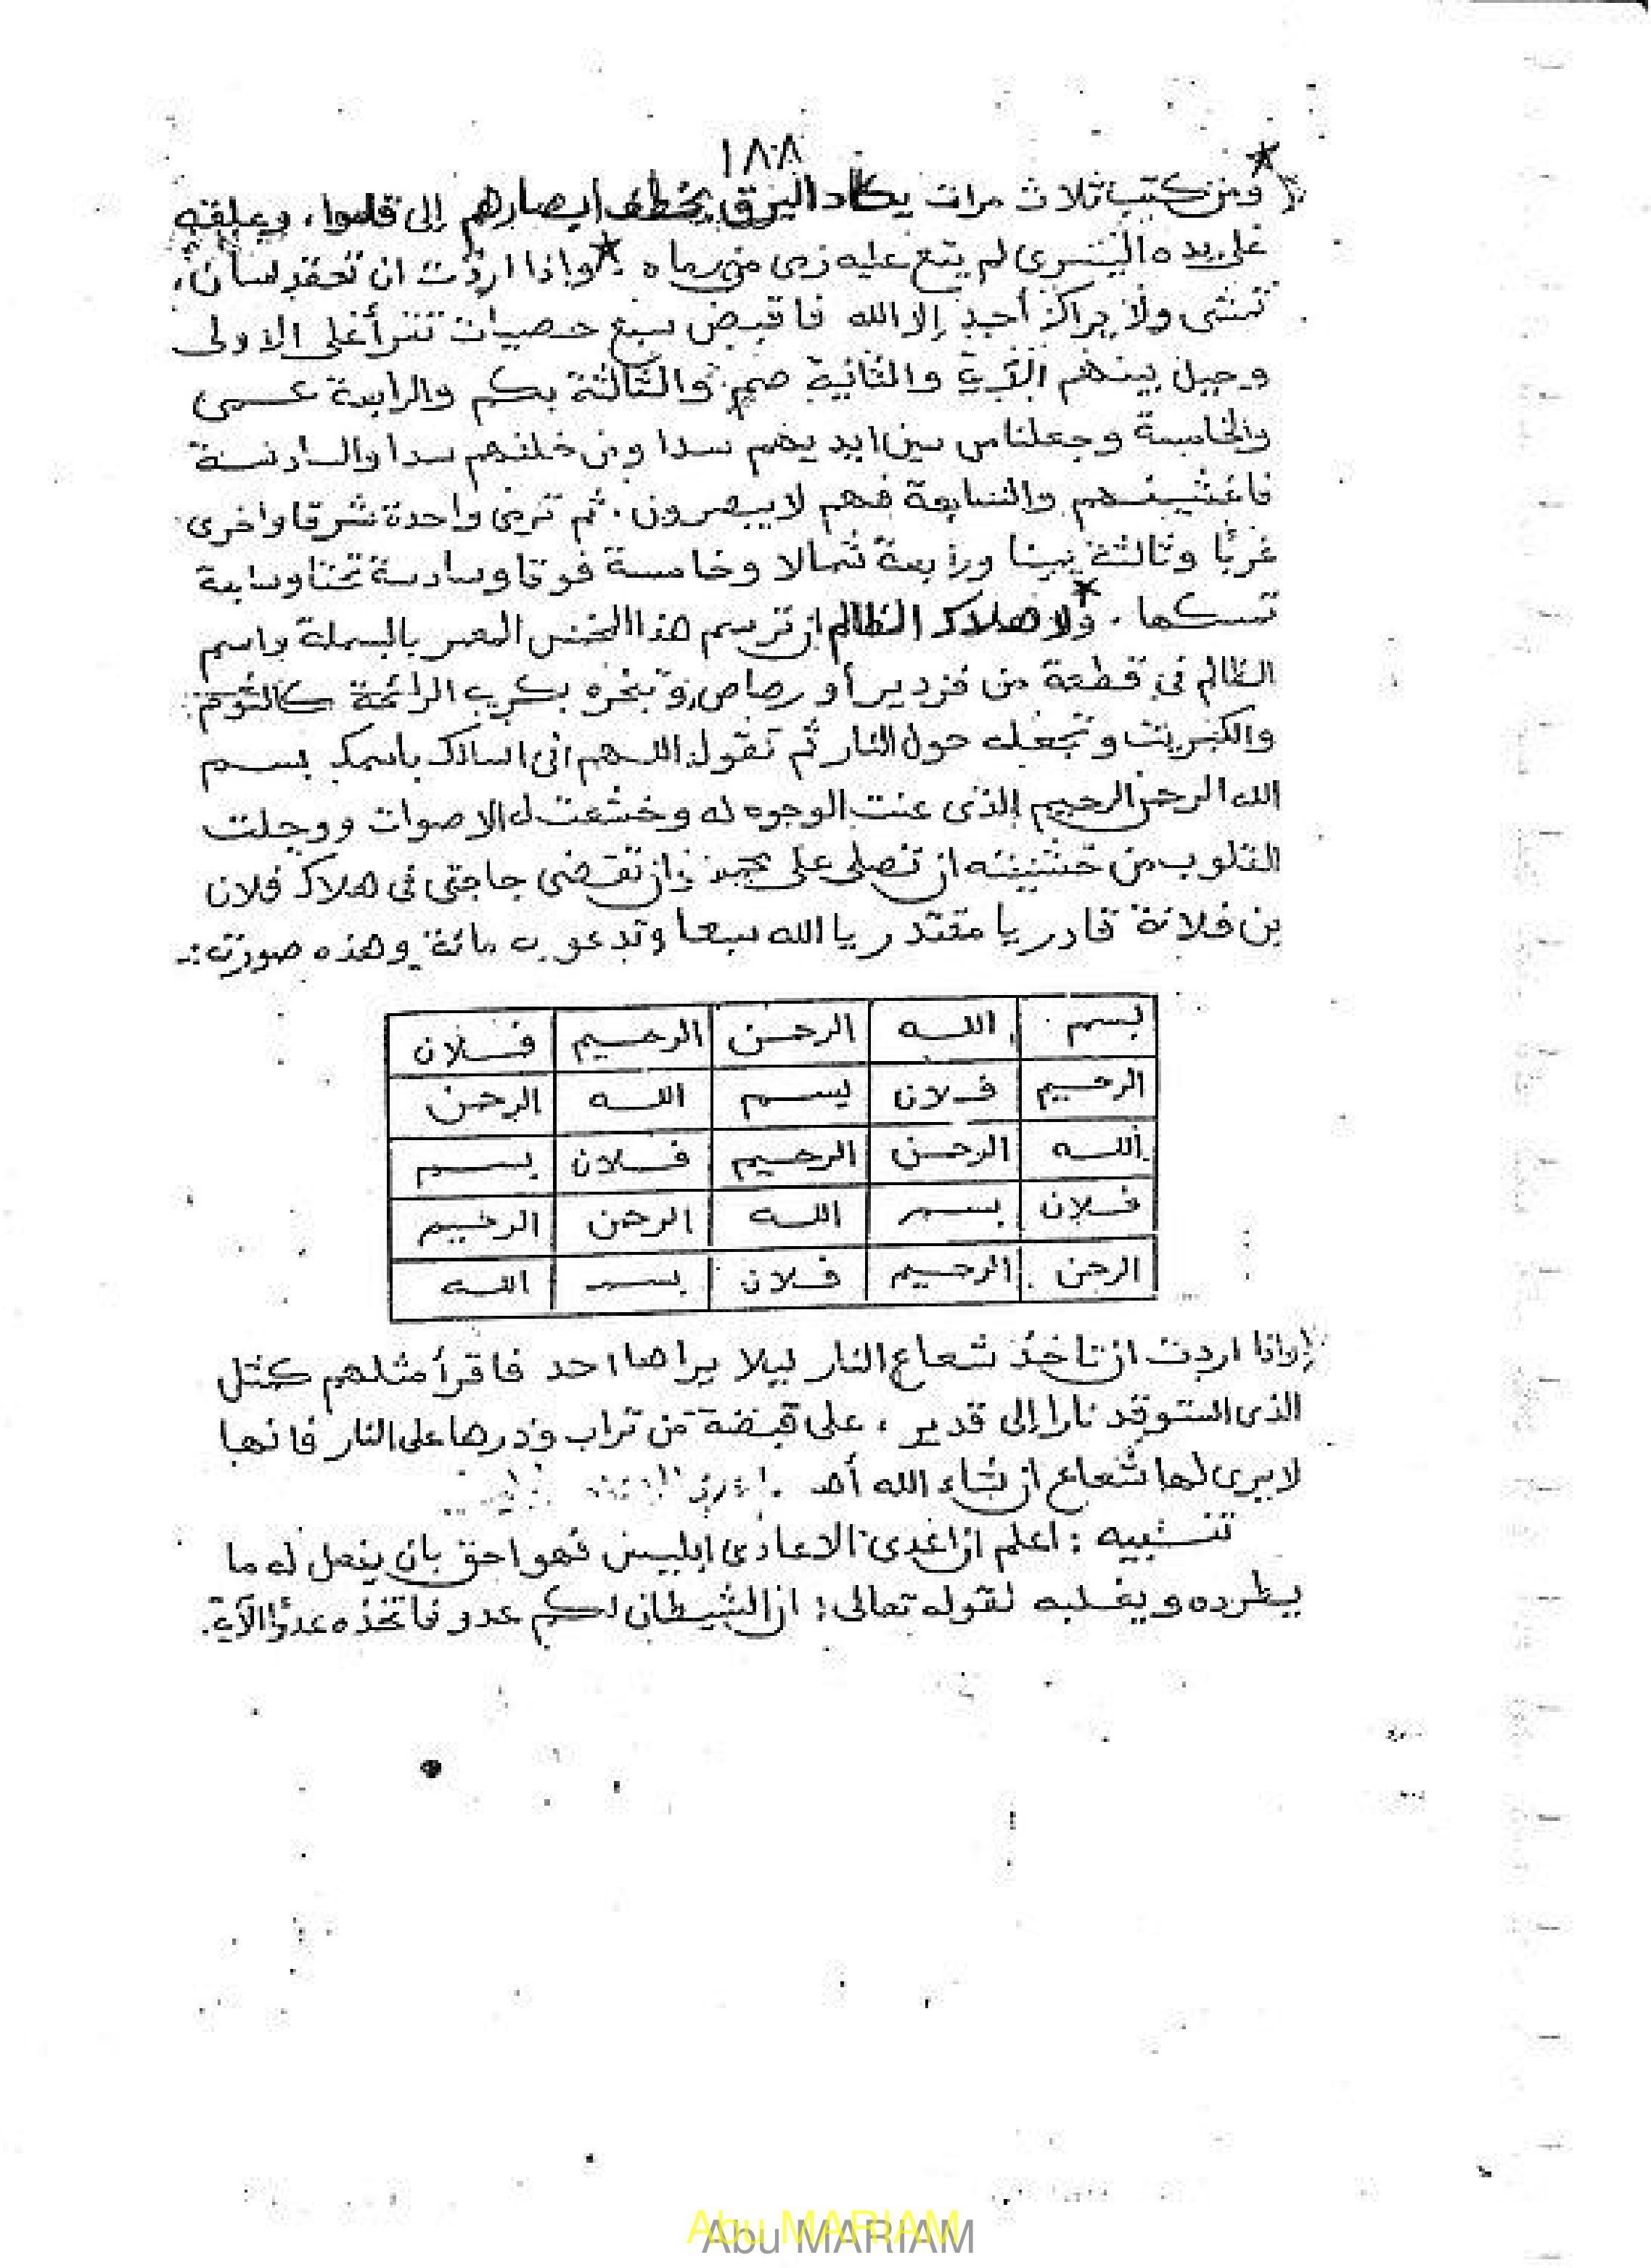 ١٨٨
ومن كتب ثلاث مرات يكاد البرق يخطف أبصارهم إلى قاموا، وعلقه
على يده اليسرى لم يقع عليه رمى من رماه . وإذا اردت ان تعقد لسان
تمشى ولا يراك أحد إلا الله فاقبض سبع حصيات تقرأ على الاولى
وحيل بينهم الآية والثانية صم والثالثة بكم والرابعة عمى
والخامسة وجعلنا من بين ايديهم سدا ومن خلفهم سدا والسادسة
فاغشينهم والسابعة فهم لا يبصرون . ثم ترمى واحدة شرقا واخرى
غربا وثالثة يمينا ورابعة شمالا وخامسة فوقا وسادسة تحتا وسابعة
تمسكها . ولاهلاك الظالم ان ترسم هذا المخمس المعمر بالبسملة واسم
الظالم في قطعة من قزدير أو رصاص وتبخره بكريه الرائحة كالثوم
والكبريت وتجعله حول النار ثم تقول اللهم انى اسالك باسمك بسم
الله الرحمن الرحيم الذى عنت الوجوه له وخشعت له الاصوات ووجلت
القلوب من خشيته ان تصلى على محمد وان تقضى حاجتى فى هلاك فلان
بن فلانة قادر يا مقتدر يا الله سبعا وتدعو به مائة وهذه صورته :
بسم الله الرحمن الرحيم فلان
الرحيم فلان بسم الله الرحمن
الله الرحمن الرحيم فلان بسم
فلان بسم الله الرحمن الرحيم
الرحمن الرحيم فلان بسم الله
وإذا اردت ان تاخذ شعاع النار ليلا يراها احد فاقرأ مثلهم كمثل
الذى استوقد نارا إلى قدير ، على قبضة من تراب وذرها على النار فانها
لا يرى لها شعاع ان شاء الله أهـ
تنبيه : اعلم ان اعدى الاعادى ابليس فهو احق بان يفعل له ما
يطرده ويغلبه لقوله تعالى : ان الشيطان لكم عدو فاتخذه عدوا الآية.
Abu MARIAM